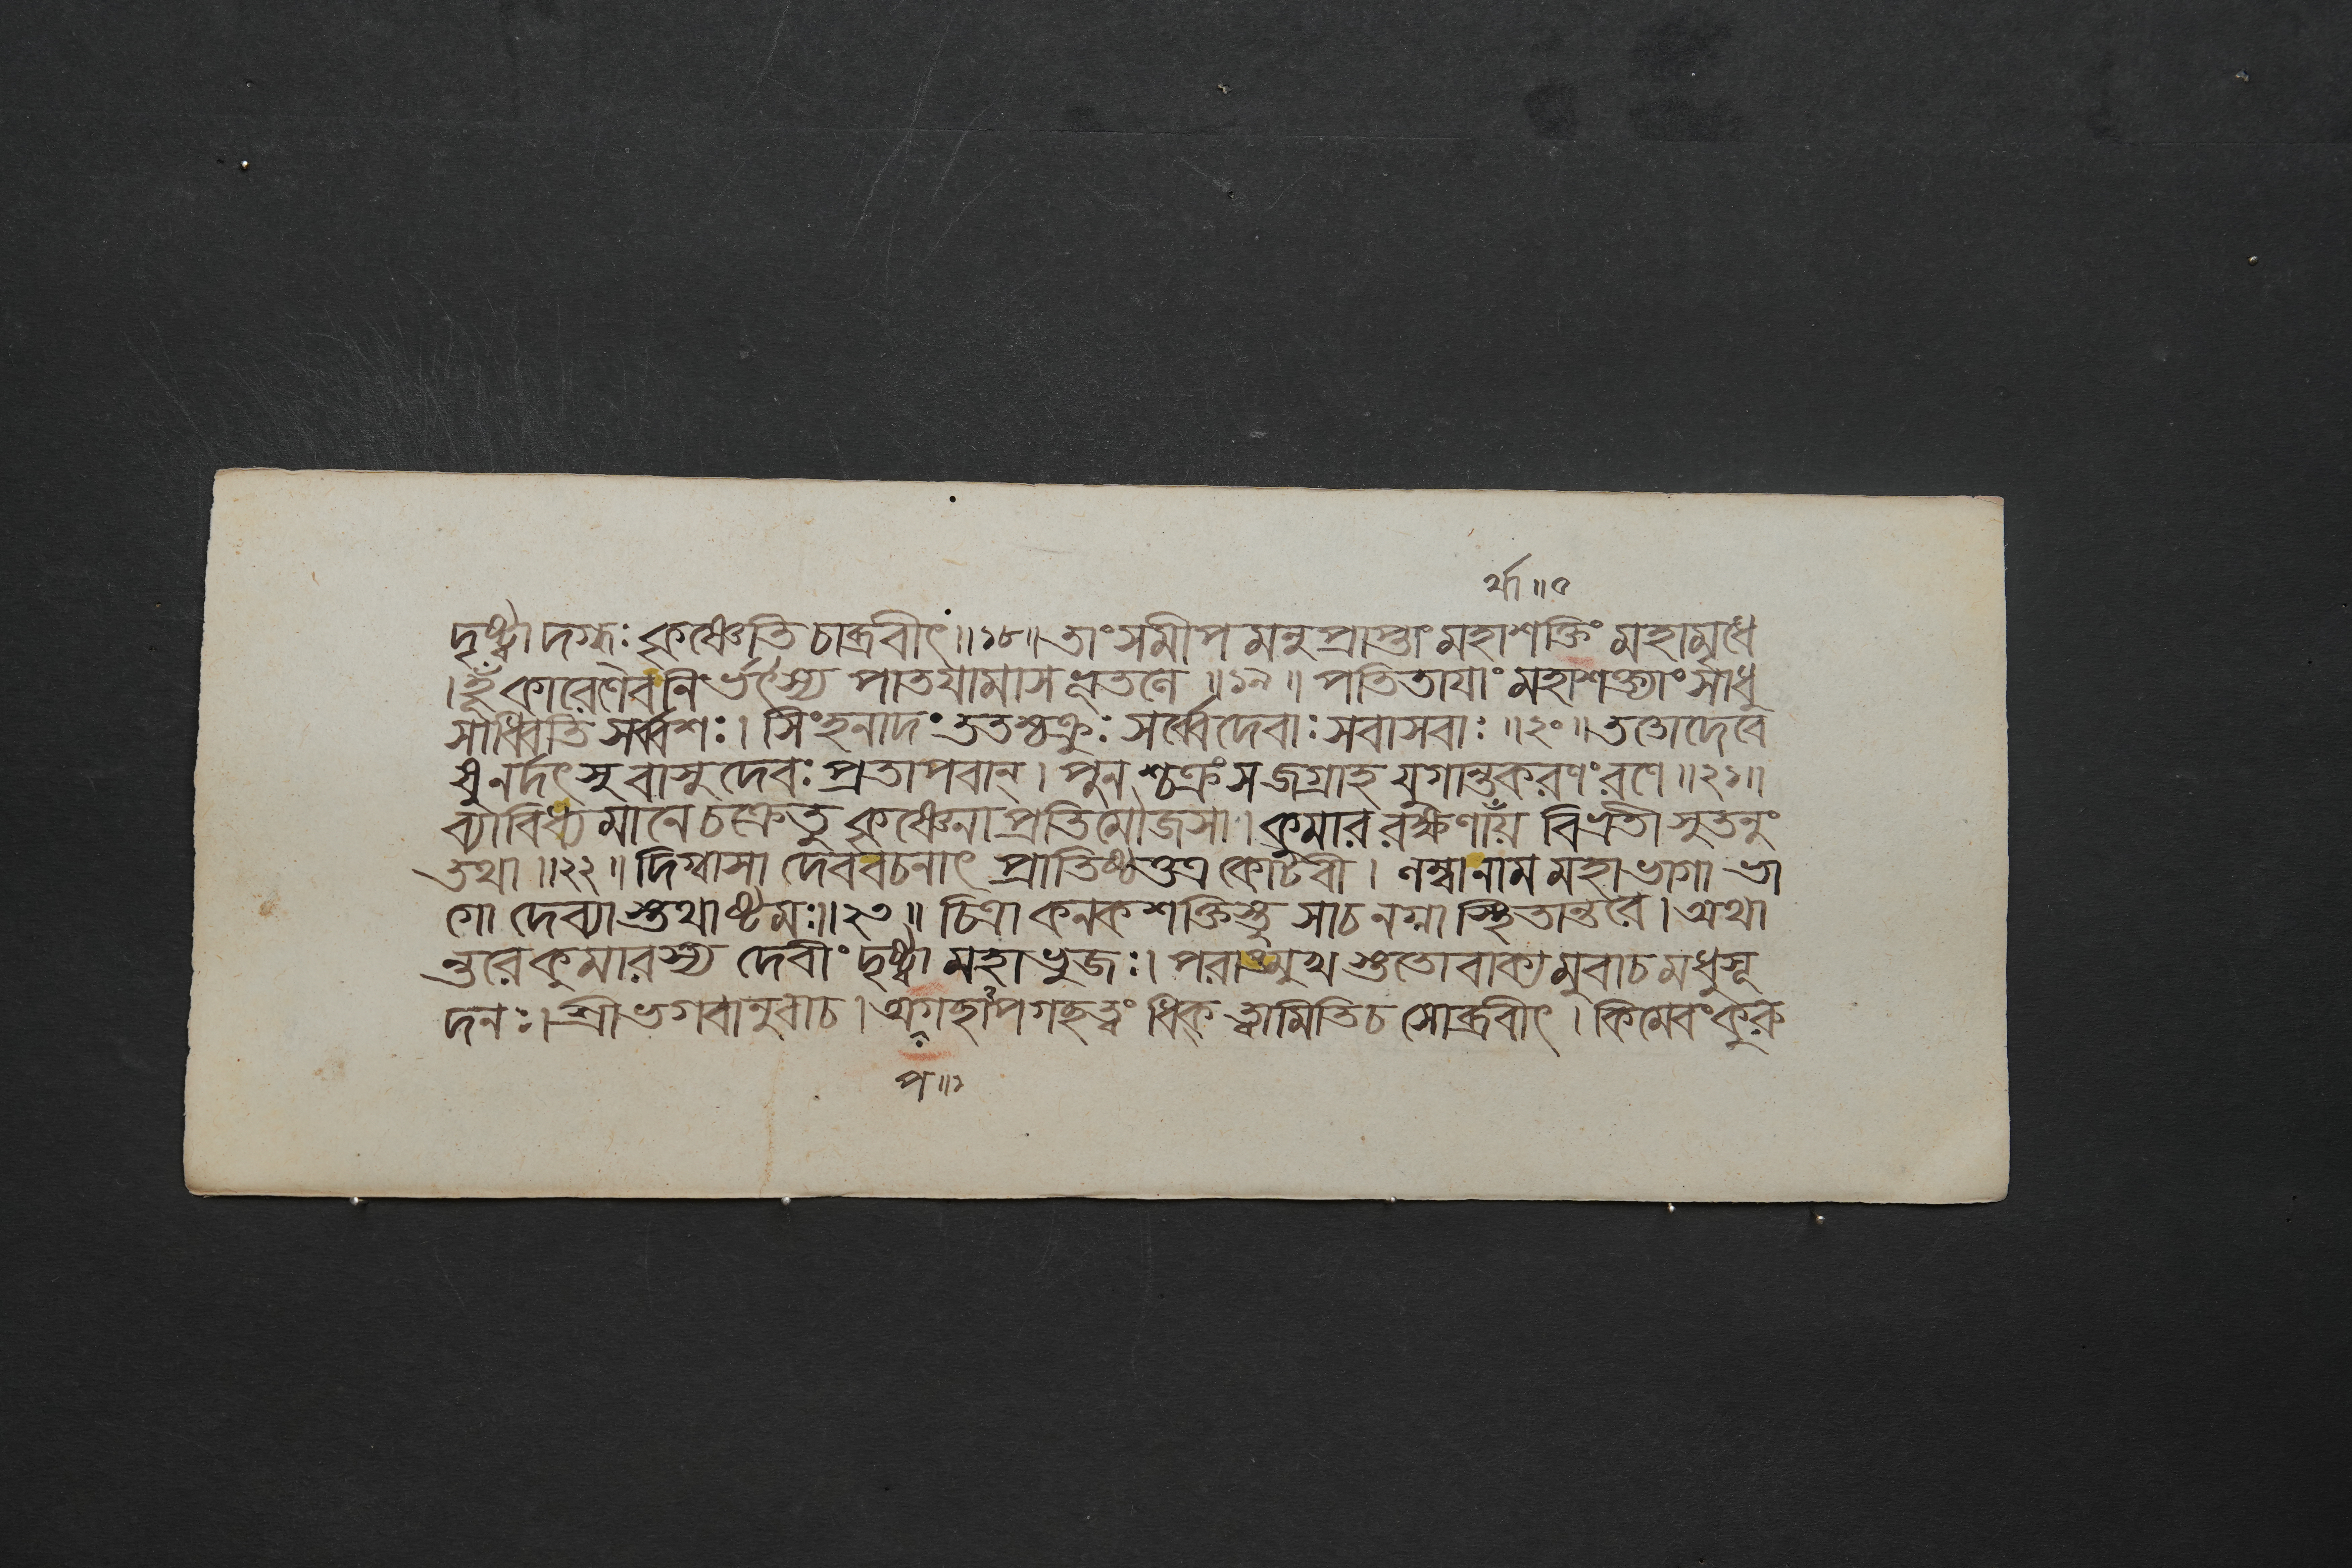 র্থা ॥ ৫
দৃষ্ট্বা দগ্ধঃ কৃষ্ণেতি চাব্রবীৎ ॥ ১৮ ॥ তাং সমীপমনুপ্রাপ্তাং মহাশক্তিং মহামৃধে
। হূঁকারেণৈব নির্ভৎস্য পাতয়ামাস ভূতলে ॥ ১৯ ॥ পতিতায়াং মহাশক্ত্যাং সাধু
সাধ্বিতি সর্ব্বশঃ । সিংহনাদং ততশ্চক্রুঃ সর্ব্বে দেবাঃ সবাসবাঃ ॥ ২০ ॥ ততো দেবে
ষু নর্দৎসু বাসুদেবঃ প্রতাপবান্ । পুনশ্চক্রং স জগ্রাহ যুগান্তকরণং রণে ॥ ২১ ॥
ব্যাবিধ্যমানে চক্রে তু কৃষ্ণেনাপ্রতিমৌজসা । কুমাররক্ষণার্থায় বিভ্রতী সুতনুং
তথা ॥ ২২ ॥ দিগ্বাসা দেববচনাৎ প্রাতিষ্ঠত্তত্র কোটবী । লম্বা নাম মহাভাগা ভা
গো দেব্যাস্তথাষ্টমঃ ॥ ২৩ ॥ চিত্রা কনকশক্তিস্তু সা চ নগ্না স্থিতান্তরে । অথা
ন্তরে কুমারস্য দেবীং দৃষ্ট্বা মহাভুজঃ । পরাঙ্মুখস্ততো বাক্যমুবাচ মধুসূ
দনঃ । শ্রীভগবানুবাচ । অগচ্ছাপগচ্ছ ত্বং ধিক্ ত্বামিতি চ সোব্রবীৎ । কিমেবং কুরু
প ॥ ১